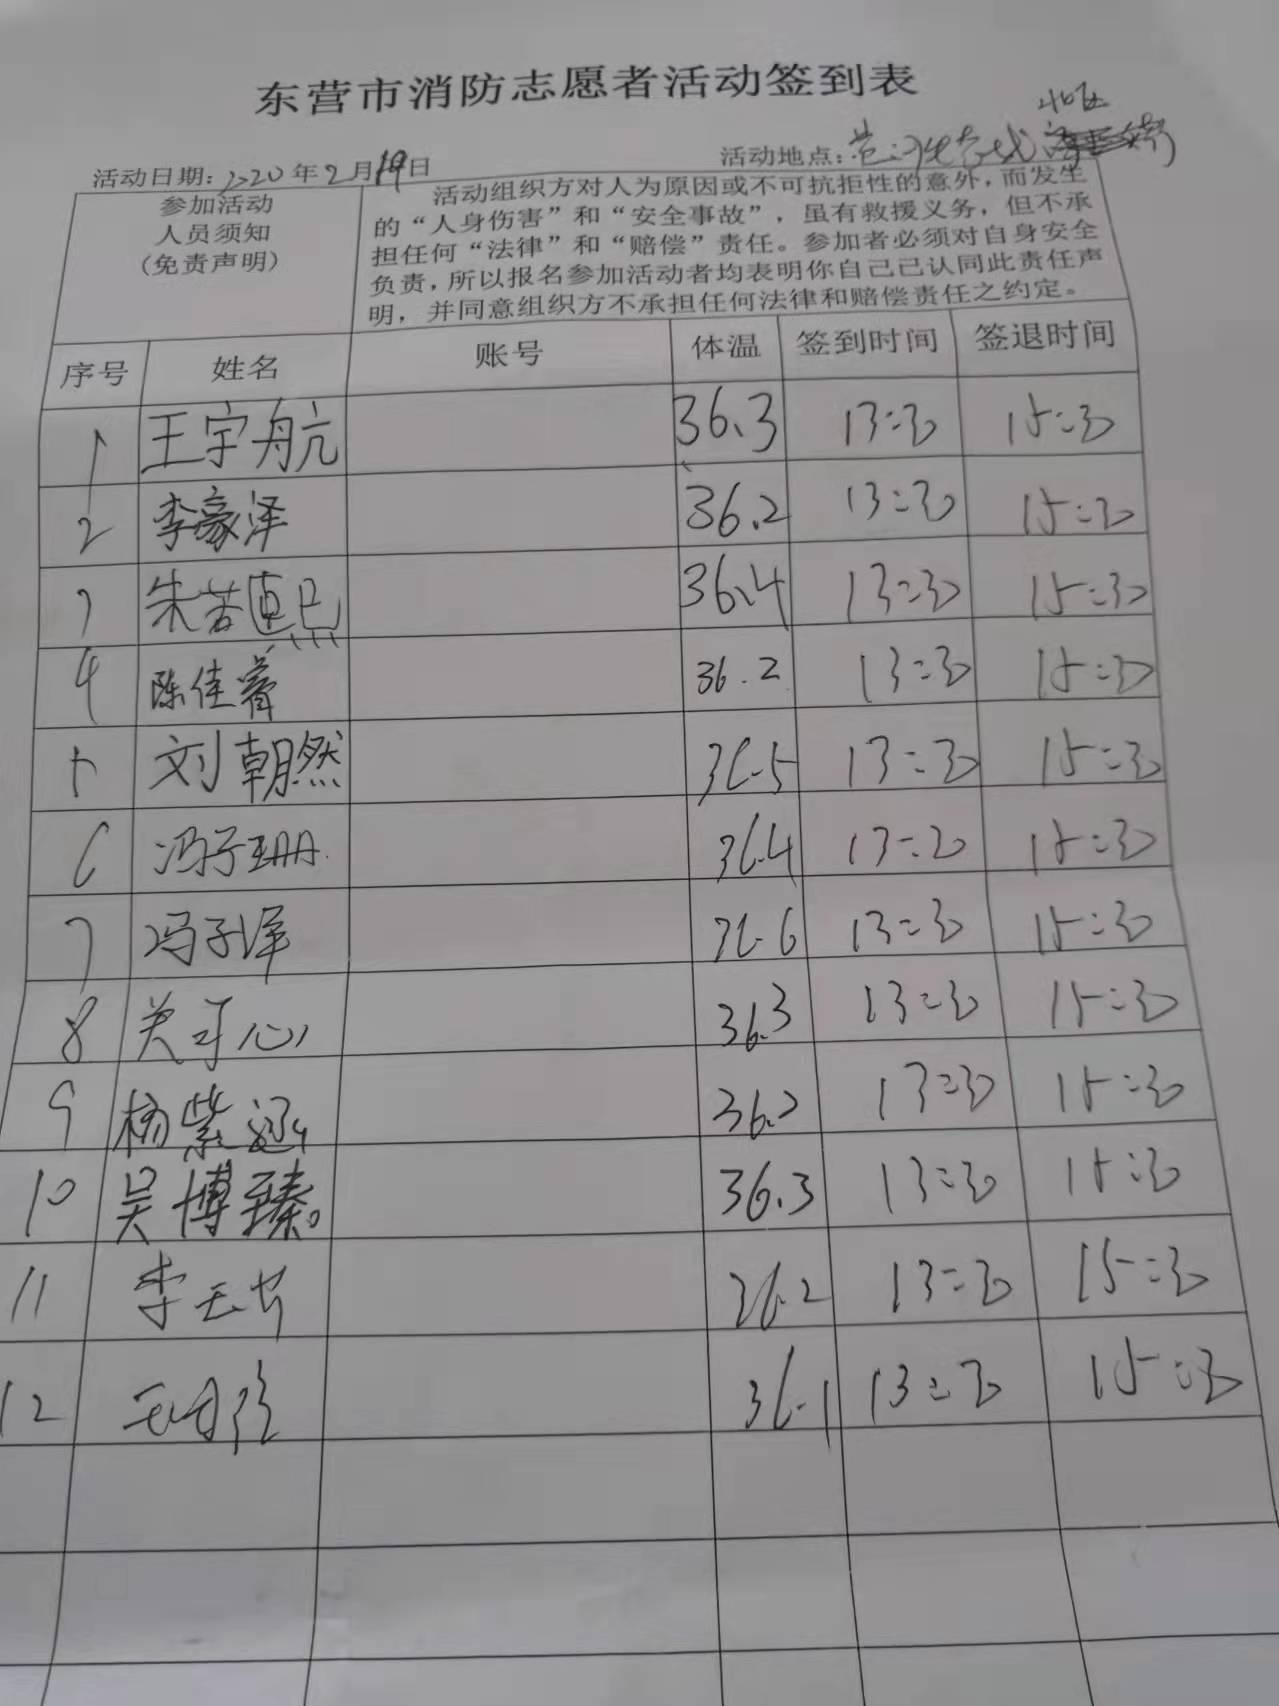 东营市消防志愿者活动签到表
活动日期：2020年2月19日 活动地点：
参加活动
人员须知
（免责声明）
活动组织方对人为原因或不可抗拒性的意外，而发生
的“人身伤害”和“安全事故”，虽有救援义务，但不承
担任何“法律”和“赔偿”责任。参加者必须对自身安全
负责，所以报名参加活动者均表明你自己己认同此责任声
明，并同意组织方不承担任何法律和赔偿责任之约定。
序号 姓名 账号 体温 签到时间 签退时间
1 王宇航 36.3 13:30 15:30
2 李豪泽 36.2 13:30 15:30
3 朱若 36.4 13:30 15:30
4 陈佳睿 36.2 13:30 15:30
5 刘朝然 36.5 13:30 15:30
6 冯子珊 36.4 13:30 15:30
7 冯子泽 36.6 13:30 15:30
8 关子心 36.3 13:30 15:30
9 杨紫涵 36.2 13:30 15:30
10 吴博臻 36.3 13:30 15:30
11 李 36.2 13:30 15:30
12 36.1 13:30 15:30